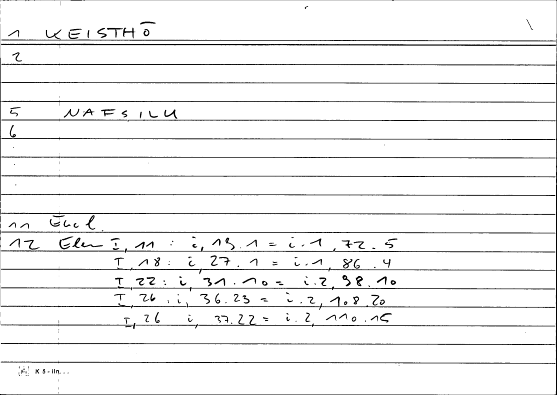 1 KEISTHŌ
2
5 NAFSILU
6
11 Eucl.
12 Elem I, 11 : i, 19.1 = i.1, 72.5
I, 18 : i, 27.1 = i.1, 86.4
I, 22 : i, 31.10 = i.2, 98.10
I, 26 : i, 36.23 = i.2, 108.20
I, 26 i, 37.22 = i.2, 110.15